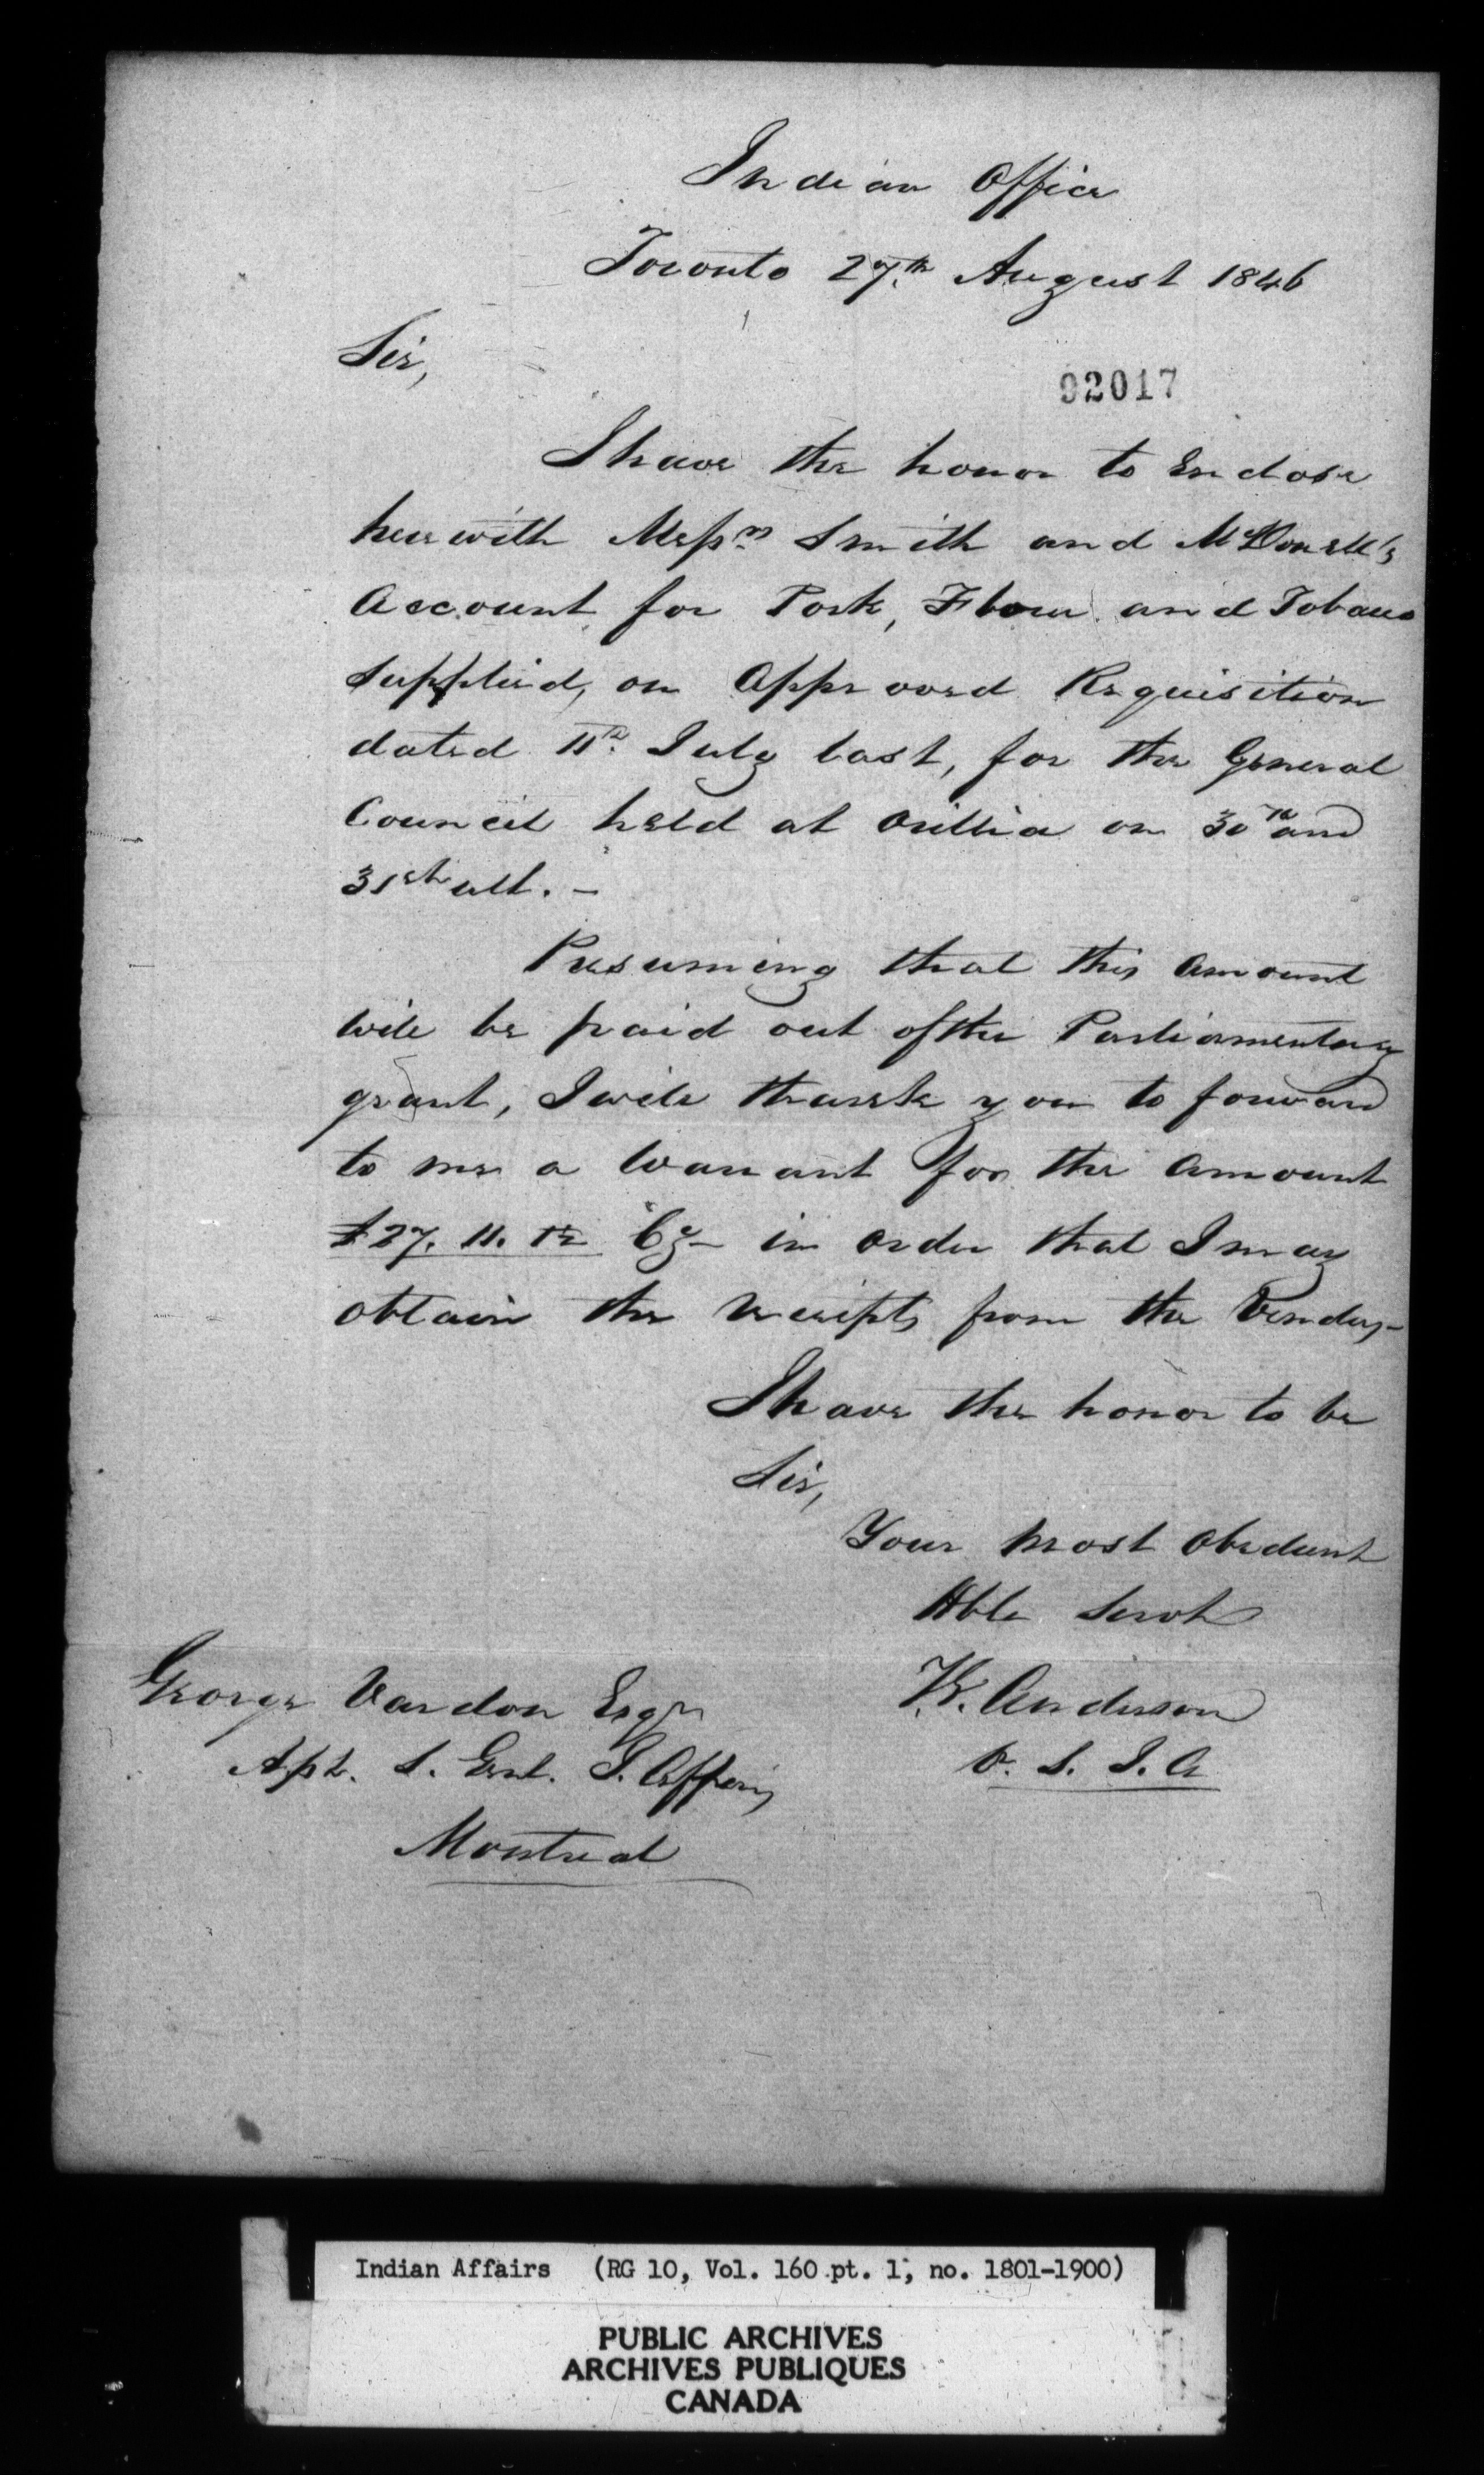 Indian Office
Toronto 27th August 1846
Sir,
92017
I have the honor to Enclose
herewith Messrs Smith and McDonell's
Account for Pork, Flour and Tobacco
supplied, on Approved Requisition
dated 11th July last, for the General
Council held at Orillia on 30th and
31st ult. -
Presuming that this Amount
will be paid out of the Parliamentary
grant, I will thank you to forward
to me a Warrant for the Amount
£27. 11. in order that I may
obtain the receipts from the Vendors -
I have the honor to be
Sir,
Your Most Obedient
Hble Servt
Anderson
S. I. A
George Vardon Esqr
Asst. S. Genl. I. Affairs
Montreal
Indian Affairs (RG 10, Vol. 160 pt. 1, no. 1801-1900)
PUBLIC ARCHIVES
ARCHIVES PUBLIQUES
CANADA